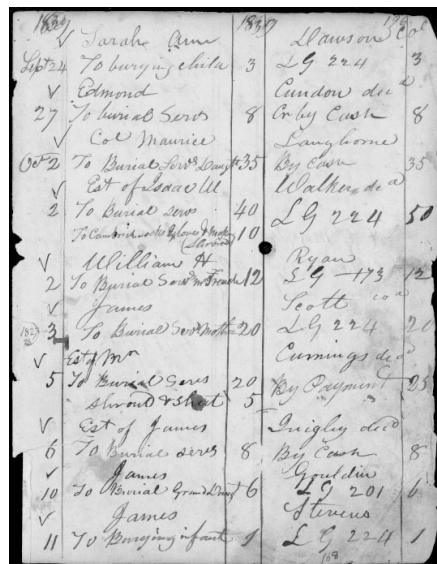 1839 1839
✓ Sarah Ann Dawson Col
Sept 24 To burying child 3 LG 224 3
✓ Edmond Cundon decd
27 To burial Servs 8 Cr by Cash 8
✓ Col Maurice Langhorne
Oct 2 To Burial Servs Daught 35 By Cash 35
✓ Est of Isaac W Walker decd
2 To Burial servs 40 LG 224 50
To Gloves & 10
✓ William H Ryan
2 To Burial Servs 12 LG 173 12
✓ James Scott
3 To Burial Servs Mother 20 LG 224 20
✓ Est of Mr Cumings decd
5 To Burial Servs 20 By Payment 25
Shroud & Sheet 5
✓ Est of James Quigley decd
6 To Burial servs 8 By Cash 8
✓ James Gouldin
10 To Burial Grand Daugt 6 LG 201 6
✓ James Stevens
11 To Burying infant 1 LG 224 1
168